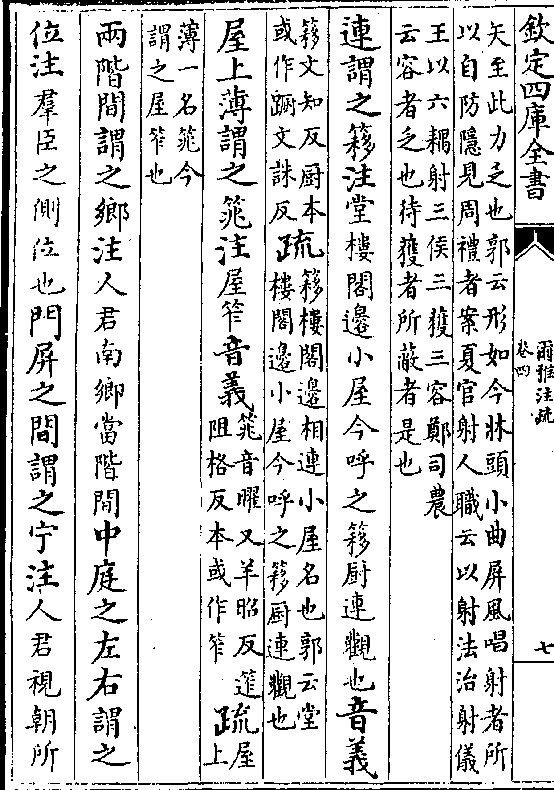 欽定四庫全書
爾雅注疏
卷四
七
矢至此力乏也郭云形如今牀頭小曲屏風唱射者所
以自防隱見周禮者案夏官射人職云以射法治射儀
王以六耦射三侯三獲三容鄭司農
云容者乏也待獲者所蔽者是也
連謂之簃注堂樓閣邊小屋今呼之簃廚連觀也音義
簃文知反廚本
或作𨃴文誅反
疏
簃樓閣邊相連小屋名也郭云堂
樓閣邊小屋今呼之簃廚連觀也
屋上薄謂之筄注屋笮音義
筄音曜又羊昭反笮
阻格反本或作笮
疏
屋上
薄一名筄今
謂之屋笮也
兩階間謂之鄉注人君南鄉當階間中庭之左右謂之
位注羣臣之側位也門屏之間謂之宁注人君視朝所